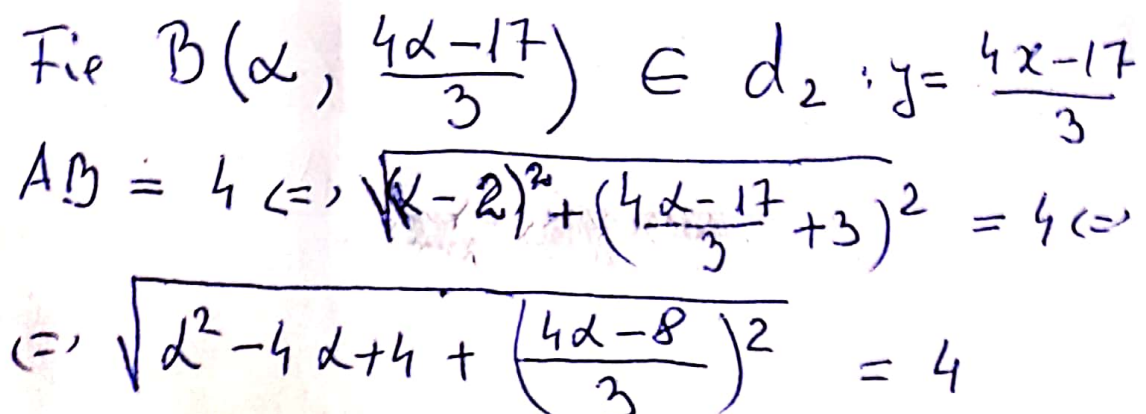 Fie B(α, (4α-17)/3) ∈ d₂ : y = (4x-17)/3
AB = 4 <=> √((α-2)² + ((4α-17)/3 + 3)²) = 4 <=>
<=> √(α² - 4α + 4 + ((4α-8)/3)²) = 4